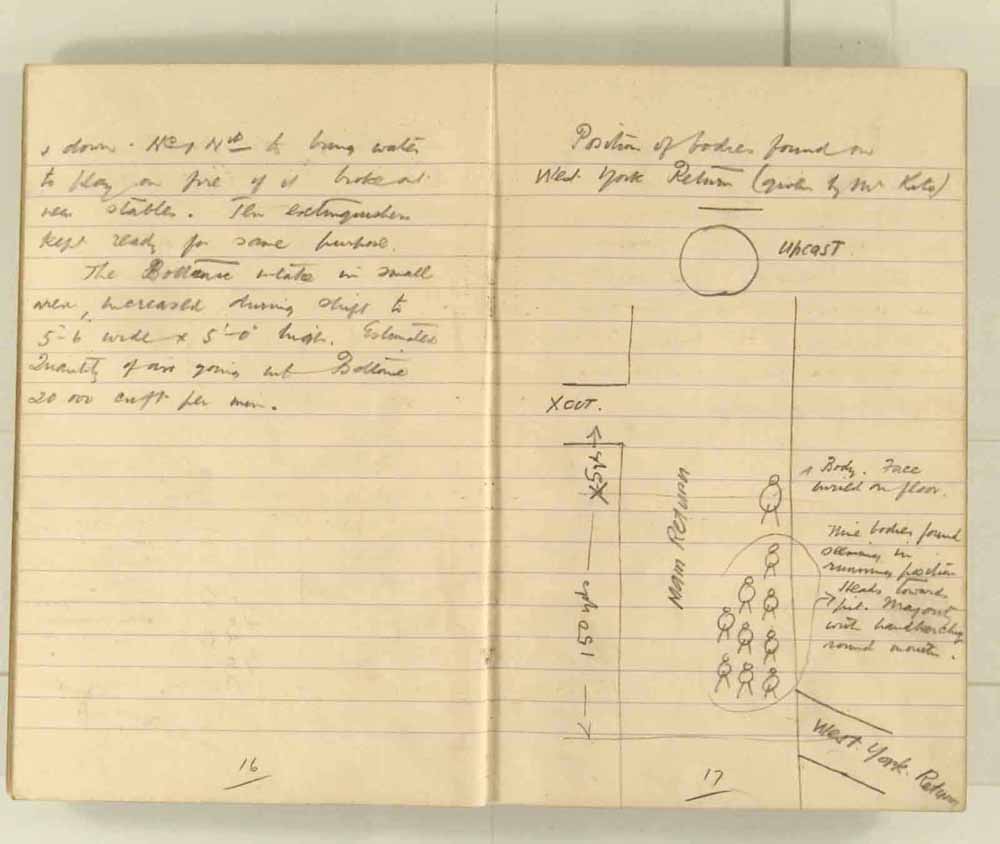 & down. to bring water
to play on fire if it broke out
near stables. Ten extinguishers
kept ready for same purpose.
The intake in small
area, increased during shift to
5'-6" wide x 5'-0" high. Estimated
Quantity of air going out
20 000 cuft per min.
16
Position of bodies found on
West York Return (given by Mr
Upcast
XCUT.
150 yds
Main Return
1 Body. Face
on floor.
Nine bodies found
seemingly in
running position
Heads towards
pit. Majority
with handkerchiefs
round mouth.
West York Return
17